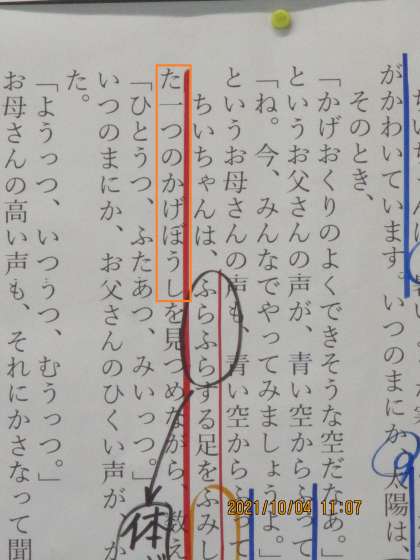 がかわいています。いつのまにか、太陽は
そのとき、
「かげおくりのよくできそうな空だなあ。」
というお父さんの声が、青い空からふって
「ね。今、みんなでやってみましょうよ。」
というお母さんの声も、青い空からふって
ちいちゃんは、ふらふらする足をふみし
た一つのかげぼうしを見つめながら、数え
「ひとうつ、ふたあつ、みいっつ。」
いつのまにか、お父さんのひくい声が、か
た。
「ようっつ、いつうつ、むうっつ。」
お母さんの高い声も、それにかさなって聞
体
2021/10/04 11:07